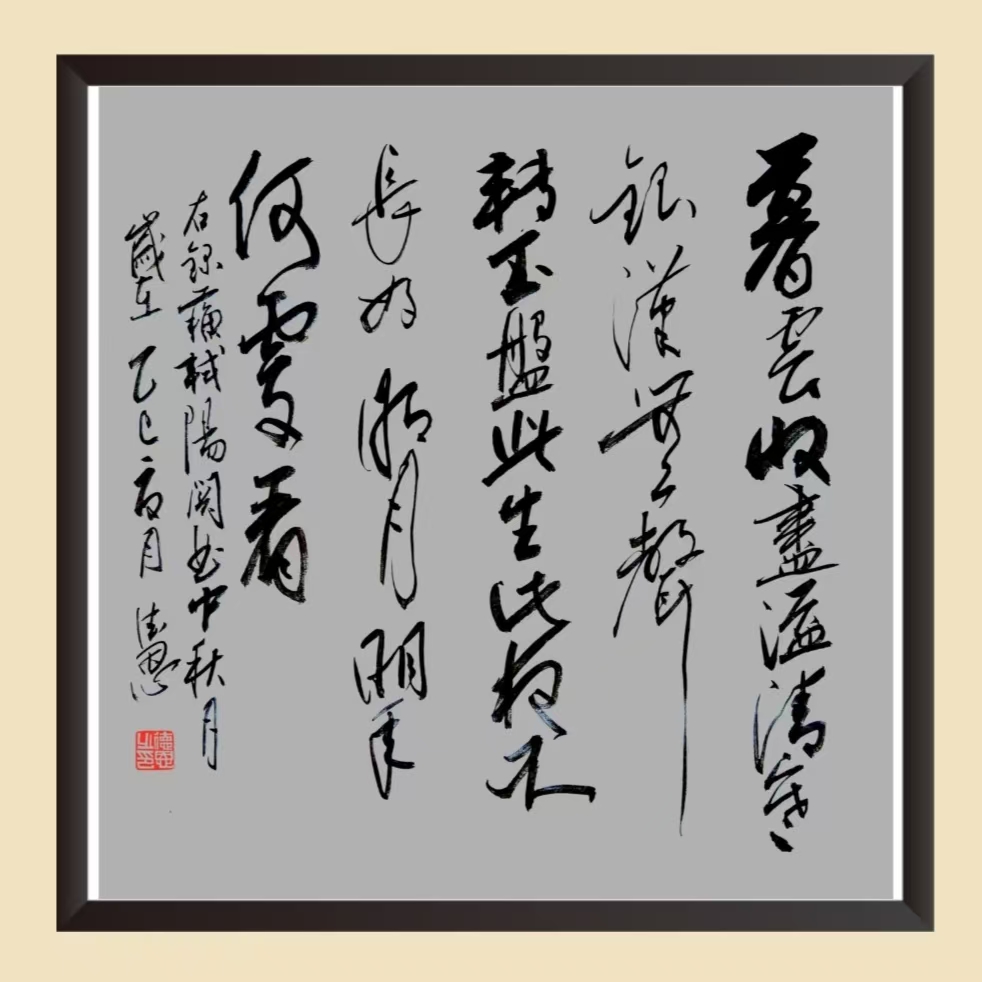 暮雲收盡溢清寒
銀漢無聲
轉玉盤此生此夜不
長好明月明年
何處看
右録蘇軾陽關曲中秋月
歲在乙巳夏月 德恩
德恩之印